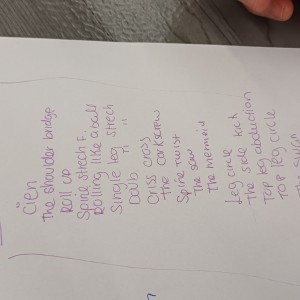 The shoulder bridge
Roll up
Spine strech F.
Rolling like a ball
Single leg strech
Doub " "
Criss cross
the corkscrew
Spine twist
The saw
The mermeid
Leg circle
The side kick
Top leg abduction
Top leg circle